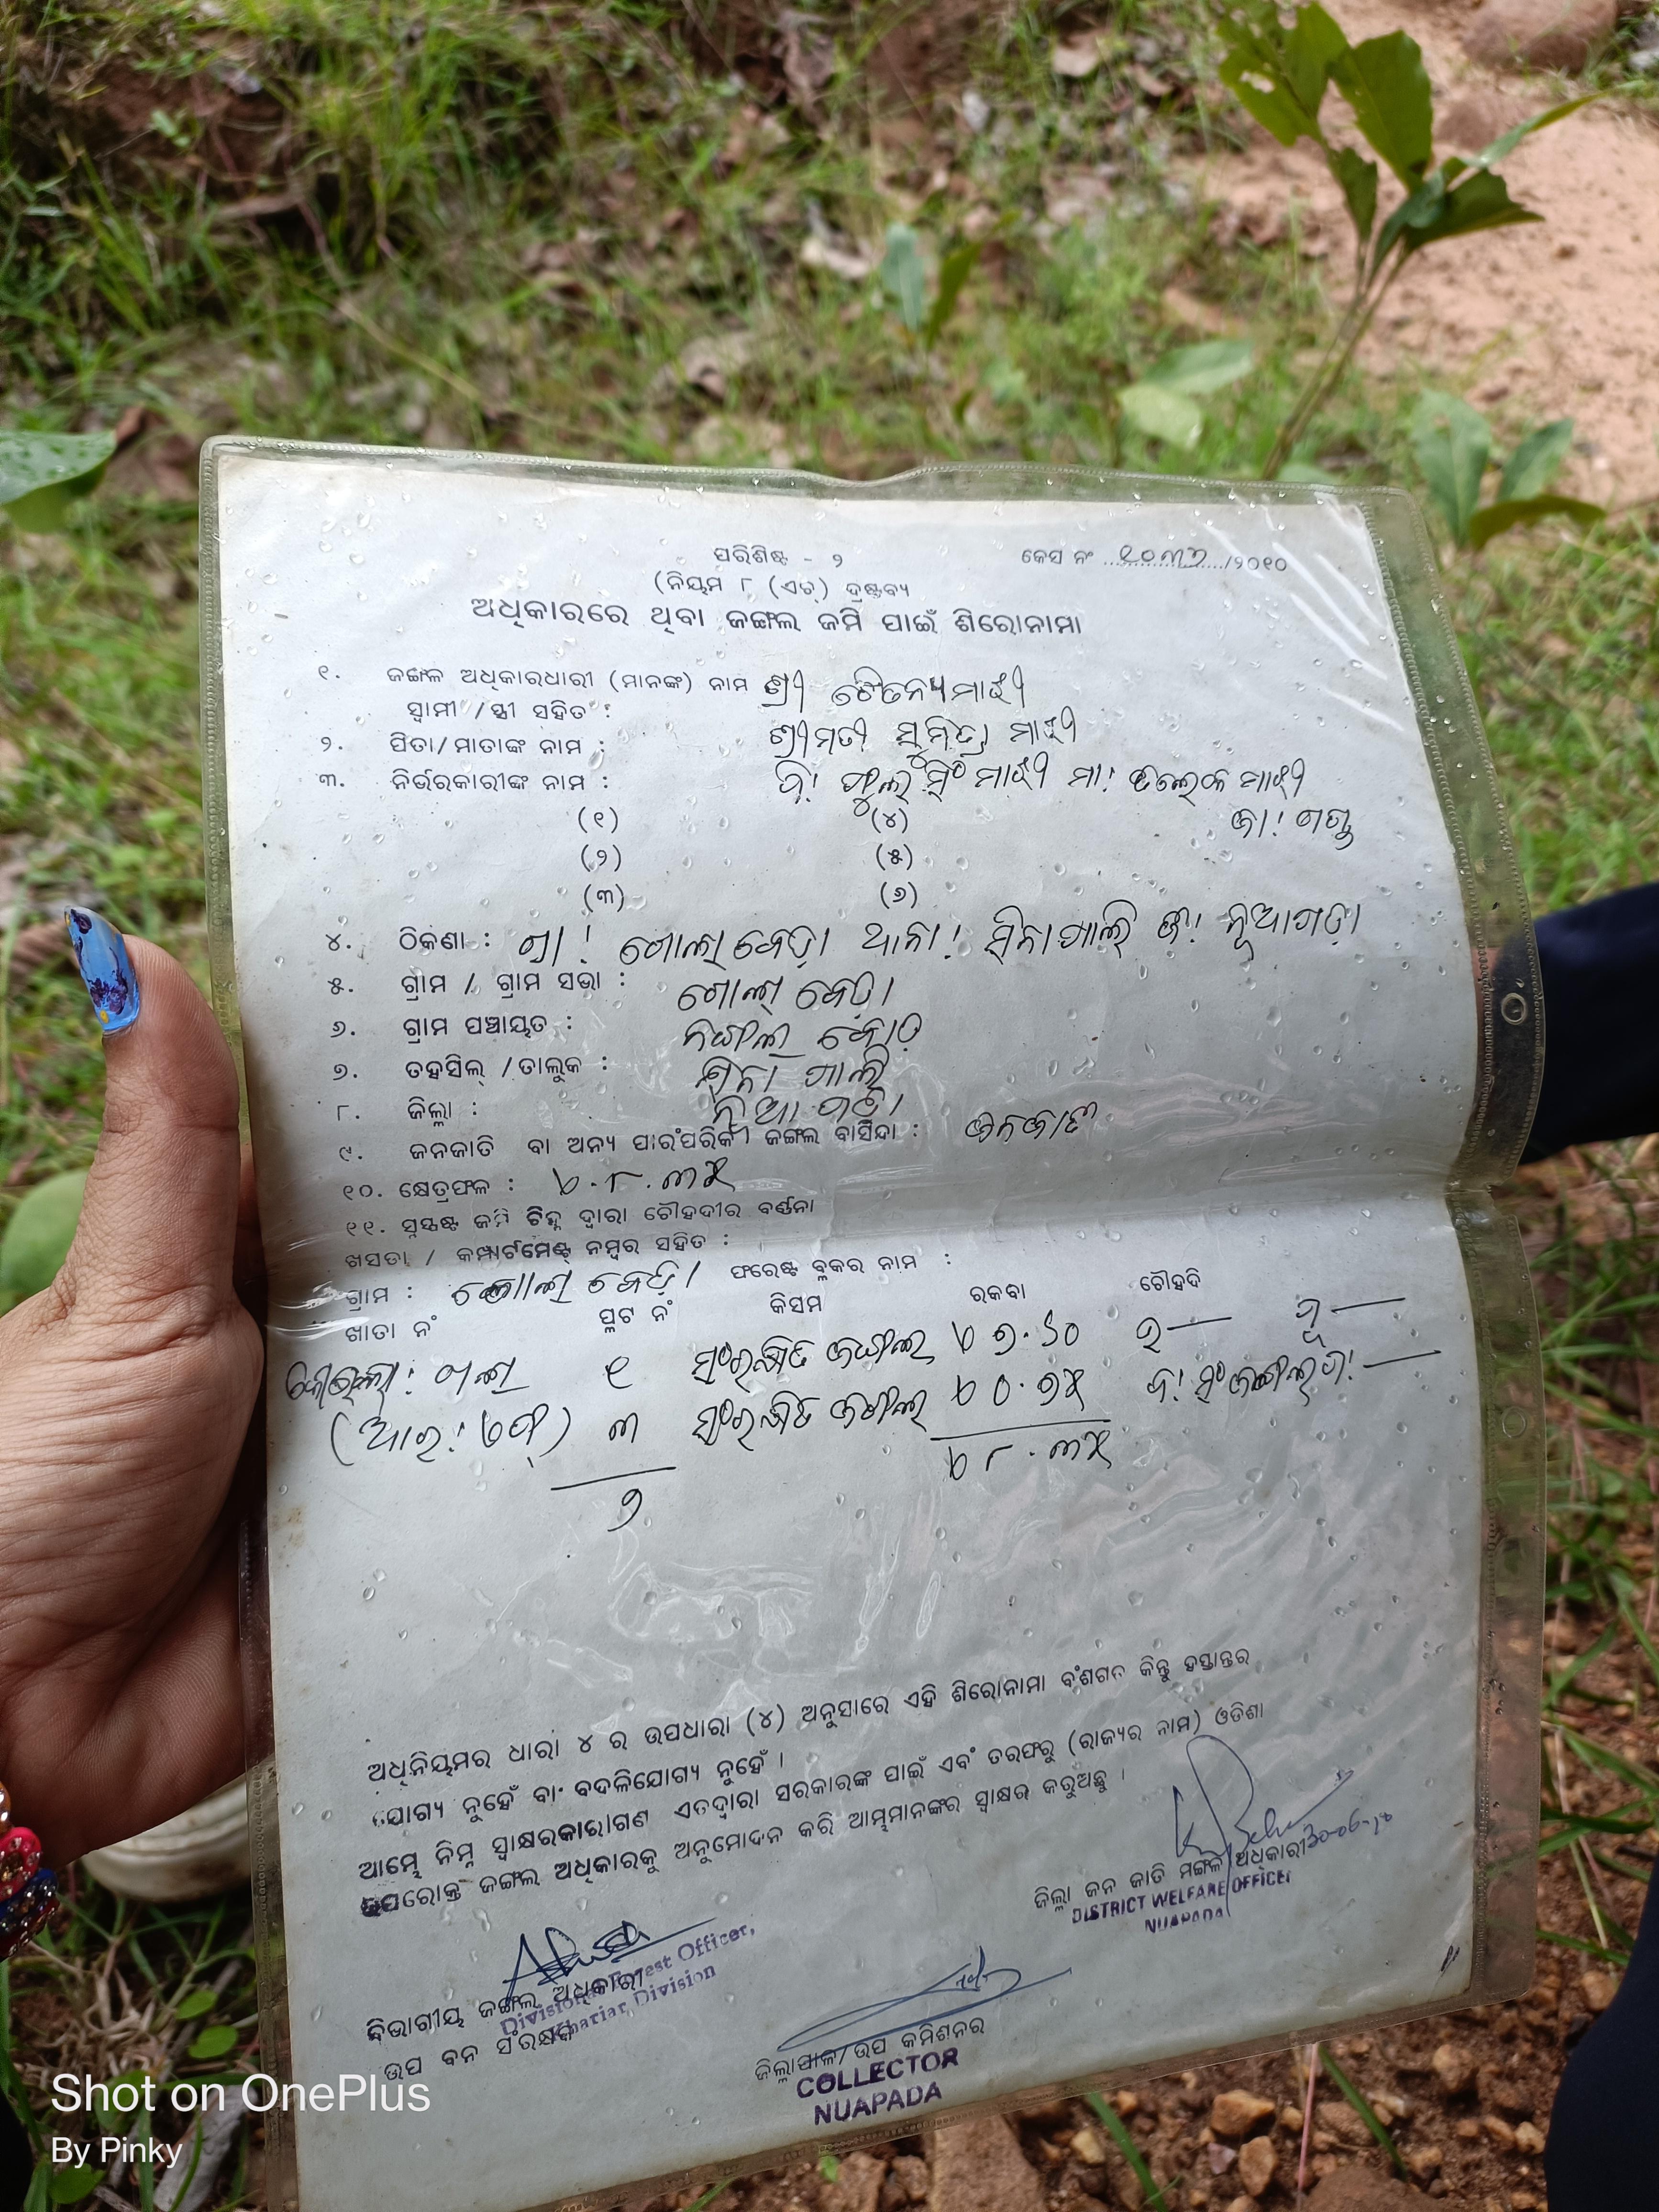 ପରିଶିଷ୍ଟ - ୨
କେସ ନଂ ୧୦୩୨/୨୦୧୦
(ନିୟମ ୮ (ଏଚ୍) ଦ୍ରଷ୍ଟବ୍ୟ
ଅଧିକାରରେ ଥିବା ଜଙ୍ଗଲ ଜମି ପାଇଁ ଶିରୋନାମା
୧. ଜଙ୍ଗଳ ଅଧିକାରଧାରୀ (ମାନଙ୍କ) ନାମ ଶ୍ରୀ ଚୈତନ୍ୟ ମାଝୀ
ସ୍ୱାମୀ /ସ୍ତ୍ରୀ ସହିତ :
୨. ପିତା/ମାତାଙ୍କ ନାମ : ଶ୍ରୀମତୀ ସୁମିତ୍ରା ମାଝୀ
୩. ନିର୍ଭରକାରୀଙ୍କ ନାମ : ପି! ଫୁଲ ସିଂ ମାଝୀ ମା! ମାଝୀ
(୧) (୪) ଜା! ଗଣ୍ଡ
(୨) (୫)
(୩) (୬)
୪. ଠିକଣା : ଗ୍ରା! ଗୋଲାବେଡ଼ା ଥାନା! ସିନାପାଲି ଜି! ନୂଆପଡ଼ା
୫. ଗ୍ରାମ / ଗ୍ରାମ ସଭା : ଗୋଲା ବେଡ଼ା
୬. ଗ୍ରାମ ପଞ୍ଚାୟତ :
୭. ତହସିଲ୍ /ତାଲୁକ : ସିନା ପାଲି
୮. ଜିଲ୍ଲା : ନୂଆ ପଡ଼ା
୯. ଜନଜାତି ବା ଅନ୍ୟ ପାରଂପରିକ ଜଙ୍ଗଲ ବାସିନ୍ଦା : ଜନଜାତି
୧୦. କ୍ଷେତ୍ରଫଳ : ୪.୮.୩୫
୧୧. ସୁସ୍ପଷ୍ଟ ଜମି ଚିହ୍ନ ଦ୍ୱାରା ଚୌହଦୀର ବର୍ଣ୍ଣନା
ଖସଡା / କମ୍ପାର୍ଟମେଣ୍ଟ ନମ୍ବର ସହିତ :
ଗ୍ରାମ : ଗୋଲା ବେଡ଼ା ଫରେଷ୍ଟ ବ୍ଲକର ନାମ :
ଖାତା ନଂ ପ୍ଲଟ ନଂ କିସମ ରକବା ଚୌହଦି
୧ ସଂରକ୍ଷିତ ଜଙ୍ଗଲ ୪ ୭.୬୦ ଉ— ପୂ—
(ଆର! ଏଫ୍) ୩ ସଂରକ୍ଷିତ ଜଙ୍ଗଲ ୪ ୦.୭୫ ଦ! ସଂ ଜଙ୍ଗଲ ପ!—
୨ ୪ ୮.୩୫
ଅଧିନିୟମର ଧାରା ୪ ର ଉପଧାରା (୪) ଅନୁସାରେ ଏହି ଶିରୋନାମା ବଂଶଗତ କିନ୍ତୁ ହସ୍ତାନ୍ତର
ଯୋଗ୍ୟ ନୁହେଁ ବା ବଦଳିଯୋଗ୍ୟ ନୁହେଁ ।
ଆମ୍ଭେ ନିମ୍ନ ସ୍ୱାକ୍ଷରକାରୀଗଣ ଏତଦ୍ୱାରା ସରକାରଙ୍କ ପାଇଁ ଏବଂ ତରଫରୁ (ରାଜ୍ୟର ନାମ) ଓଡିଶା
ଉପରୋକ୍ତ ଜଙ୍ଗଲ ଅଧିକାରକୁ ଅନୁମୋଦନ କରି ଆମ୍ଭମାନଙ୍କର ସ୍ୱାକ୍ଷର କରୁଅଛୁ ।
ଜିଲ୍ଲା ଜନ ଜାତି ମଙ୍ଗଳ ଅଧିକାରୀ
DISTRICT WELFARE OFFICER
NUAPADA
ବିଭାଗୀୟ ଜଙ୍ଗଲ ଅଧିକାରୀ
Divisional Forest Officer,
Khariar Division
ଉପ ବନ ସଂରକ୍ଷକ
ଜିଲ୍ଲାପାଳ/ଉପ କମିଶନର
COLLECTOR
NUAPADA
Shot on OnePlus
By Pinky